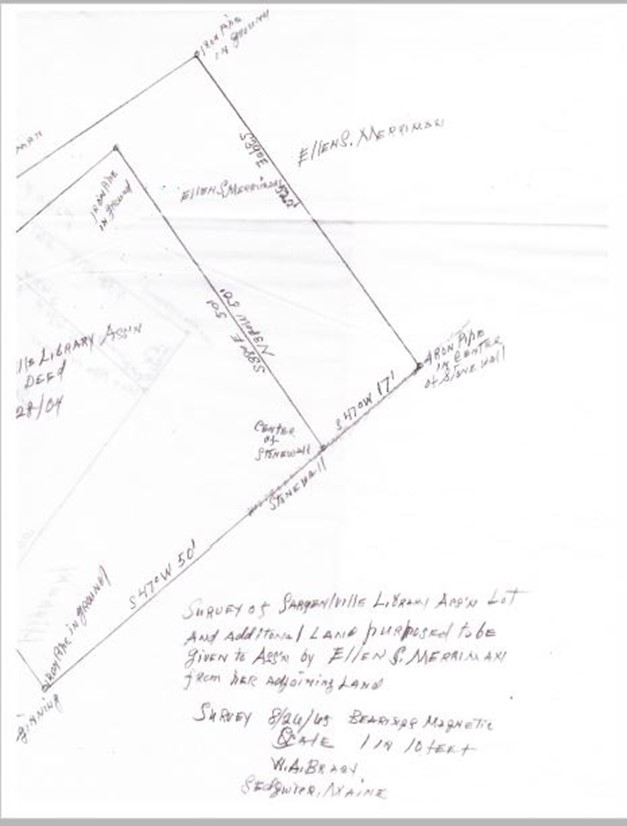 IRON PIPE
IN GROUND
ELLEN S. MERRIMAN
ELLEN S. MERRIMAN
IRON PIPE
IN GROUND
LIBRARY ASS'N
DEED
28/04
IRON PIPE
IN CENTER
of STONEWALL
S 47° W 17'
CENTER
of
STONEWALL
STONEWALL
S 47° W 50'
IRON PIPE IN GROUND
SURVEY OF SARGENTVILLE LIBRARY ASS'N LOT
AND ADDITIONAL LAND PURPOSED to be
given to ASS'N by ELLEN S. MERRIMAN
from HER Adjoining LAND
SURVEY 8/26/65 BEARINGS MAGNETIC
SCALE 1 IN 10 FEET
SEDGWICK, MAINE